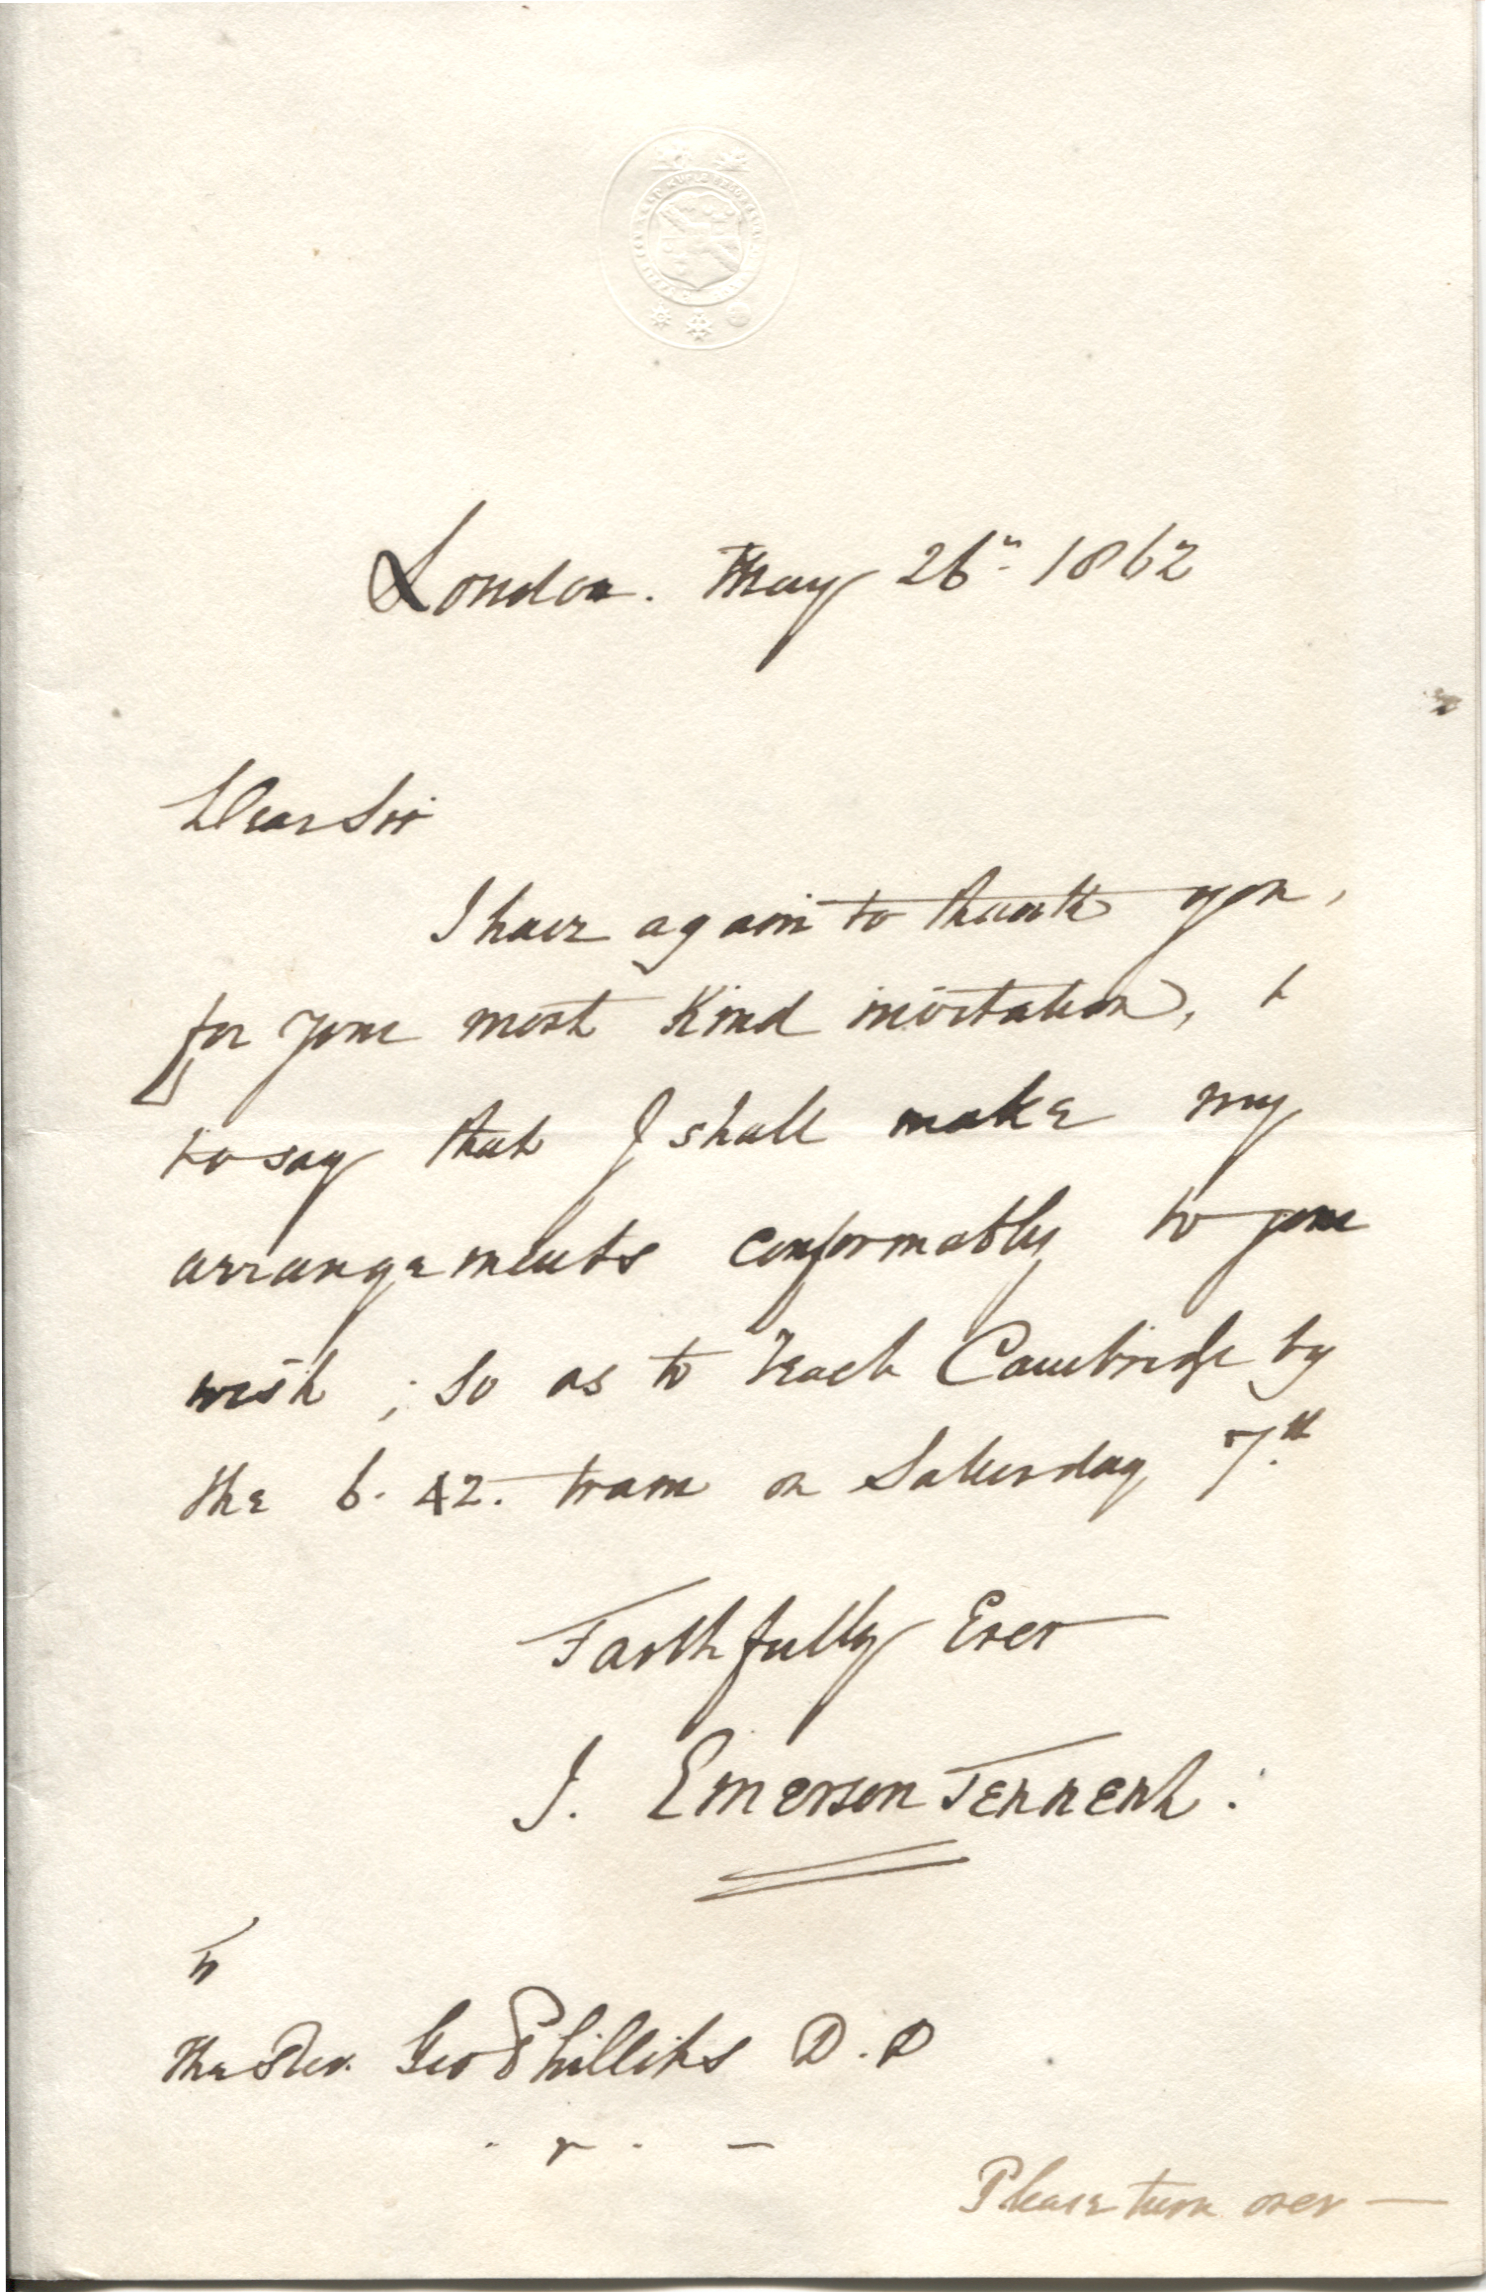 London. May 26th 1862
Dear Sir
I have again to thank you,
for your most kind invitation, &
to say that I shall make my
arrangements conformably to your
wish; so as to reach Cambridge by
the 6.42. train on Saturday 7th.
Faithfully Ever
J. Emerson Tennent:
To
The Rev. Geo Phillips D.D
Please turn over —